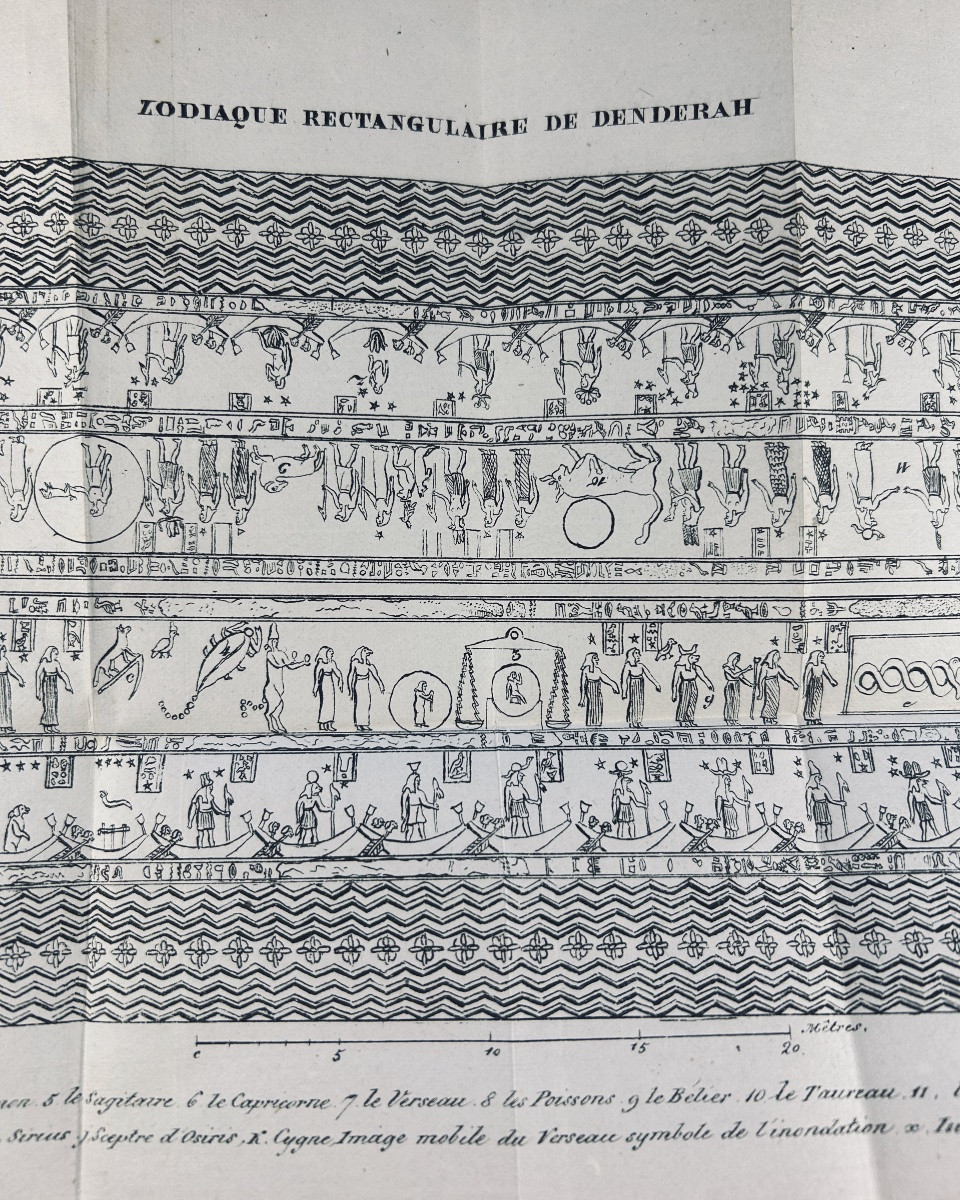 ZODIAQUE RECTANGULAIRE DE DENDERAH
9
10
11
3
c
e
Mètres.
5 10 15 20.
5 le Sagitaire 6 le Capricorne 7 le Verseau 8 les Poissons 9 le Bélier 10 le Taureau 11
Sirius Sceptre d'Osiris, K. Cygne, Image mobile du Verseau symbole de l'inondation